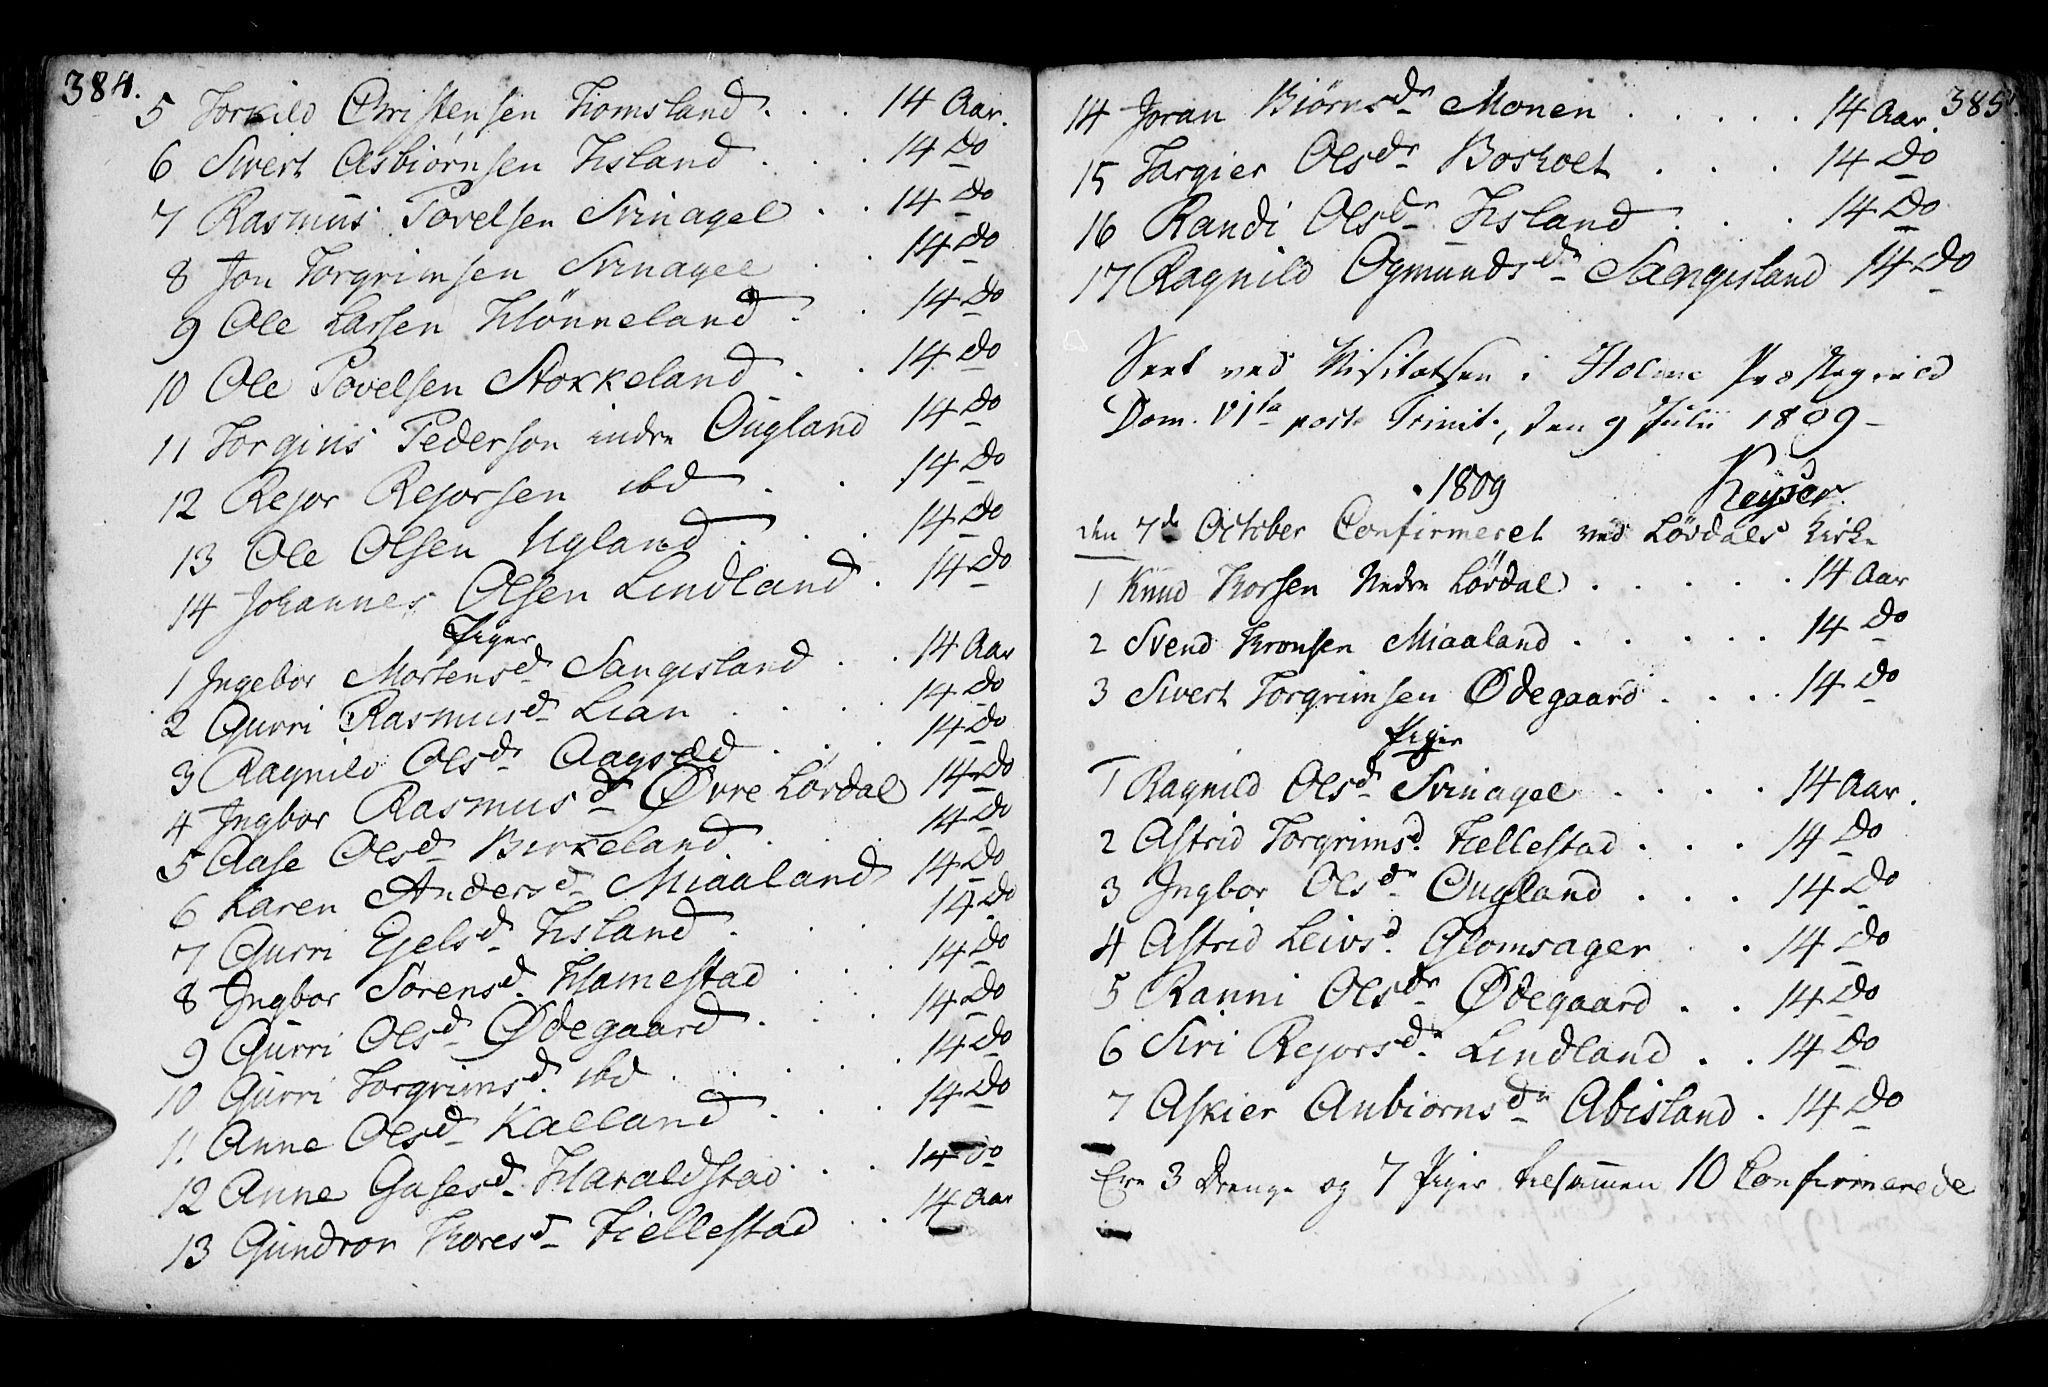 384.
5 Torkild Christensen Homsland . . . 14 Aar.
6 Sivert Asbiørnsen Hsland . . . 14 Do
7 Rasmus Povelsen Svinagel . . 14 Do
8 Jon Torgrimsen Svinagel . . 14 Do
9 Ole Larsen Hönneland . . 14 Do
10 Ole Povelsen Stokkeland . . 14 Do
11 Torgius Pedersøn indre Ougland 14 Do
12 Rejor Rejorsen ibd . . 14 Do
13 Ole Olsen Ugland . . . 14 Do
14 Johannes Olsen Lindland . 14 Do
Piger
1 Ingebor Mortensd. Sangesland . . 14 Aar
2 Gurri Rasmusd. Lian . . . . 14 Do
3 Ragnild Olsdr. Aagsæd . . . 14 Do
4 Ingbor Rasmusdr. Øvre Lövdal 14 Do
5 Aase Olsd. Birkeland . . . 14 Do
6 Karen Andersd. Miaaland 14 Do
7 Gurri Ejelsd. Hsland . . . 14 Do
8 Ingbor Sörensd. Hamestad . . . 14 Do
9 Gurri Olsd. Ødegaard . . . 14 Do
10 Gurri Torgrimsd. ibd . . . . 14 Do
11 Anne Olsd. Kalland . . . 14 Do
12 Anne Gasesd. Haraldstad . . . 14 Do
13 Gundror Thoresd. Fiellestad . . 14 Aar
385.
14 Joran Biörnsdr. Monen . . . . . 14 Aar.
15 Targier Olsdr. Boskolt . . . 14 Do
16 Randi Olsdr. Hsland . . . 14 Do
17 Ragnild Ogmundsdr. Sangesland 14 Do
Seet ved Visitatsen i Holme Præstegield
Dom. VIta post Trinit., den 9 Julii 1809 -
Keyser
1809
den 7de October Confirmeret ved Lövdals Kirke
1 Knud Thorsen Nedre Lövdal . . . . . 14 Aar
2 Svend Aronsen Miaaland . . . . . 14 Do
3 Sivert Torgrimsen Ødegaard . . . . 14 Do
Piger
1 Ragnild Olsd. Svinagel . . . . 14 Aar.
2 Astrid Torgrimsd. Fiellestad . . . 14 Do
3 Ingbor Olsdr. Ougland . . . 14 Do
4 Astrid Leivsd. Glomsager . . 14 Do
5 Ranni Olsdr. Ødegaard . . 14 Do
6 Siri Rejorsdr. Lindland . . 14 Do
7 Askier Anbiornsdr. Abisland . 14 Do
Ere 3 Drenge og 7 Piger tilsammen 10 Confirmerede